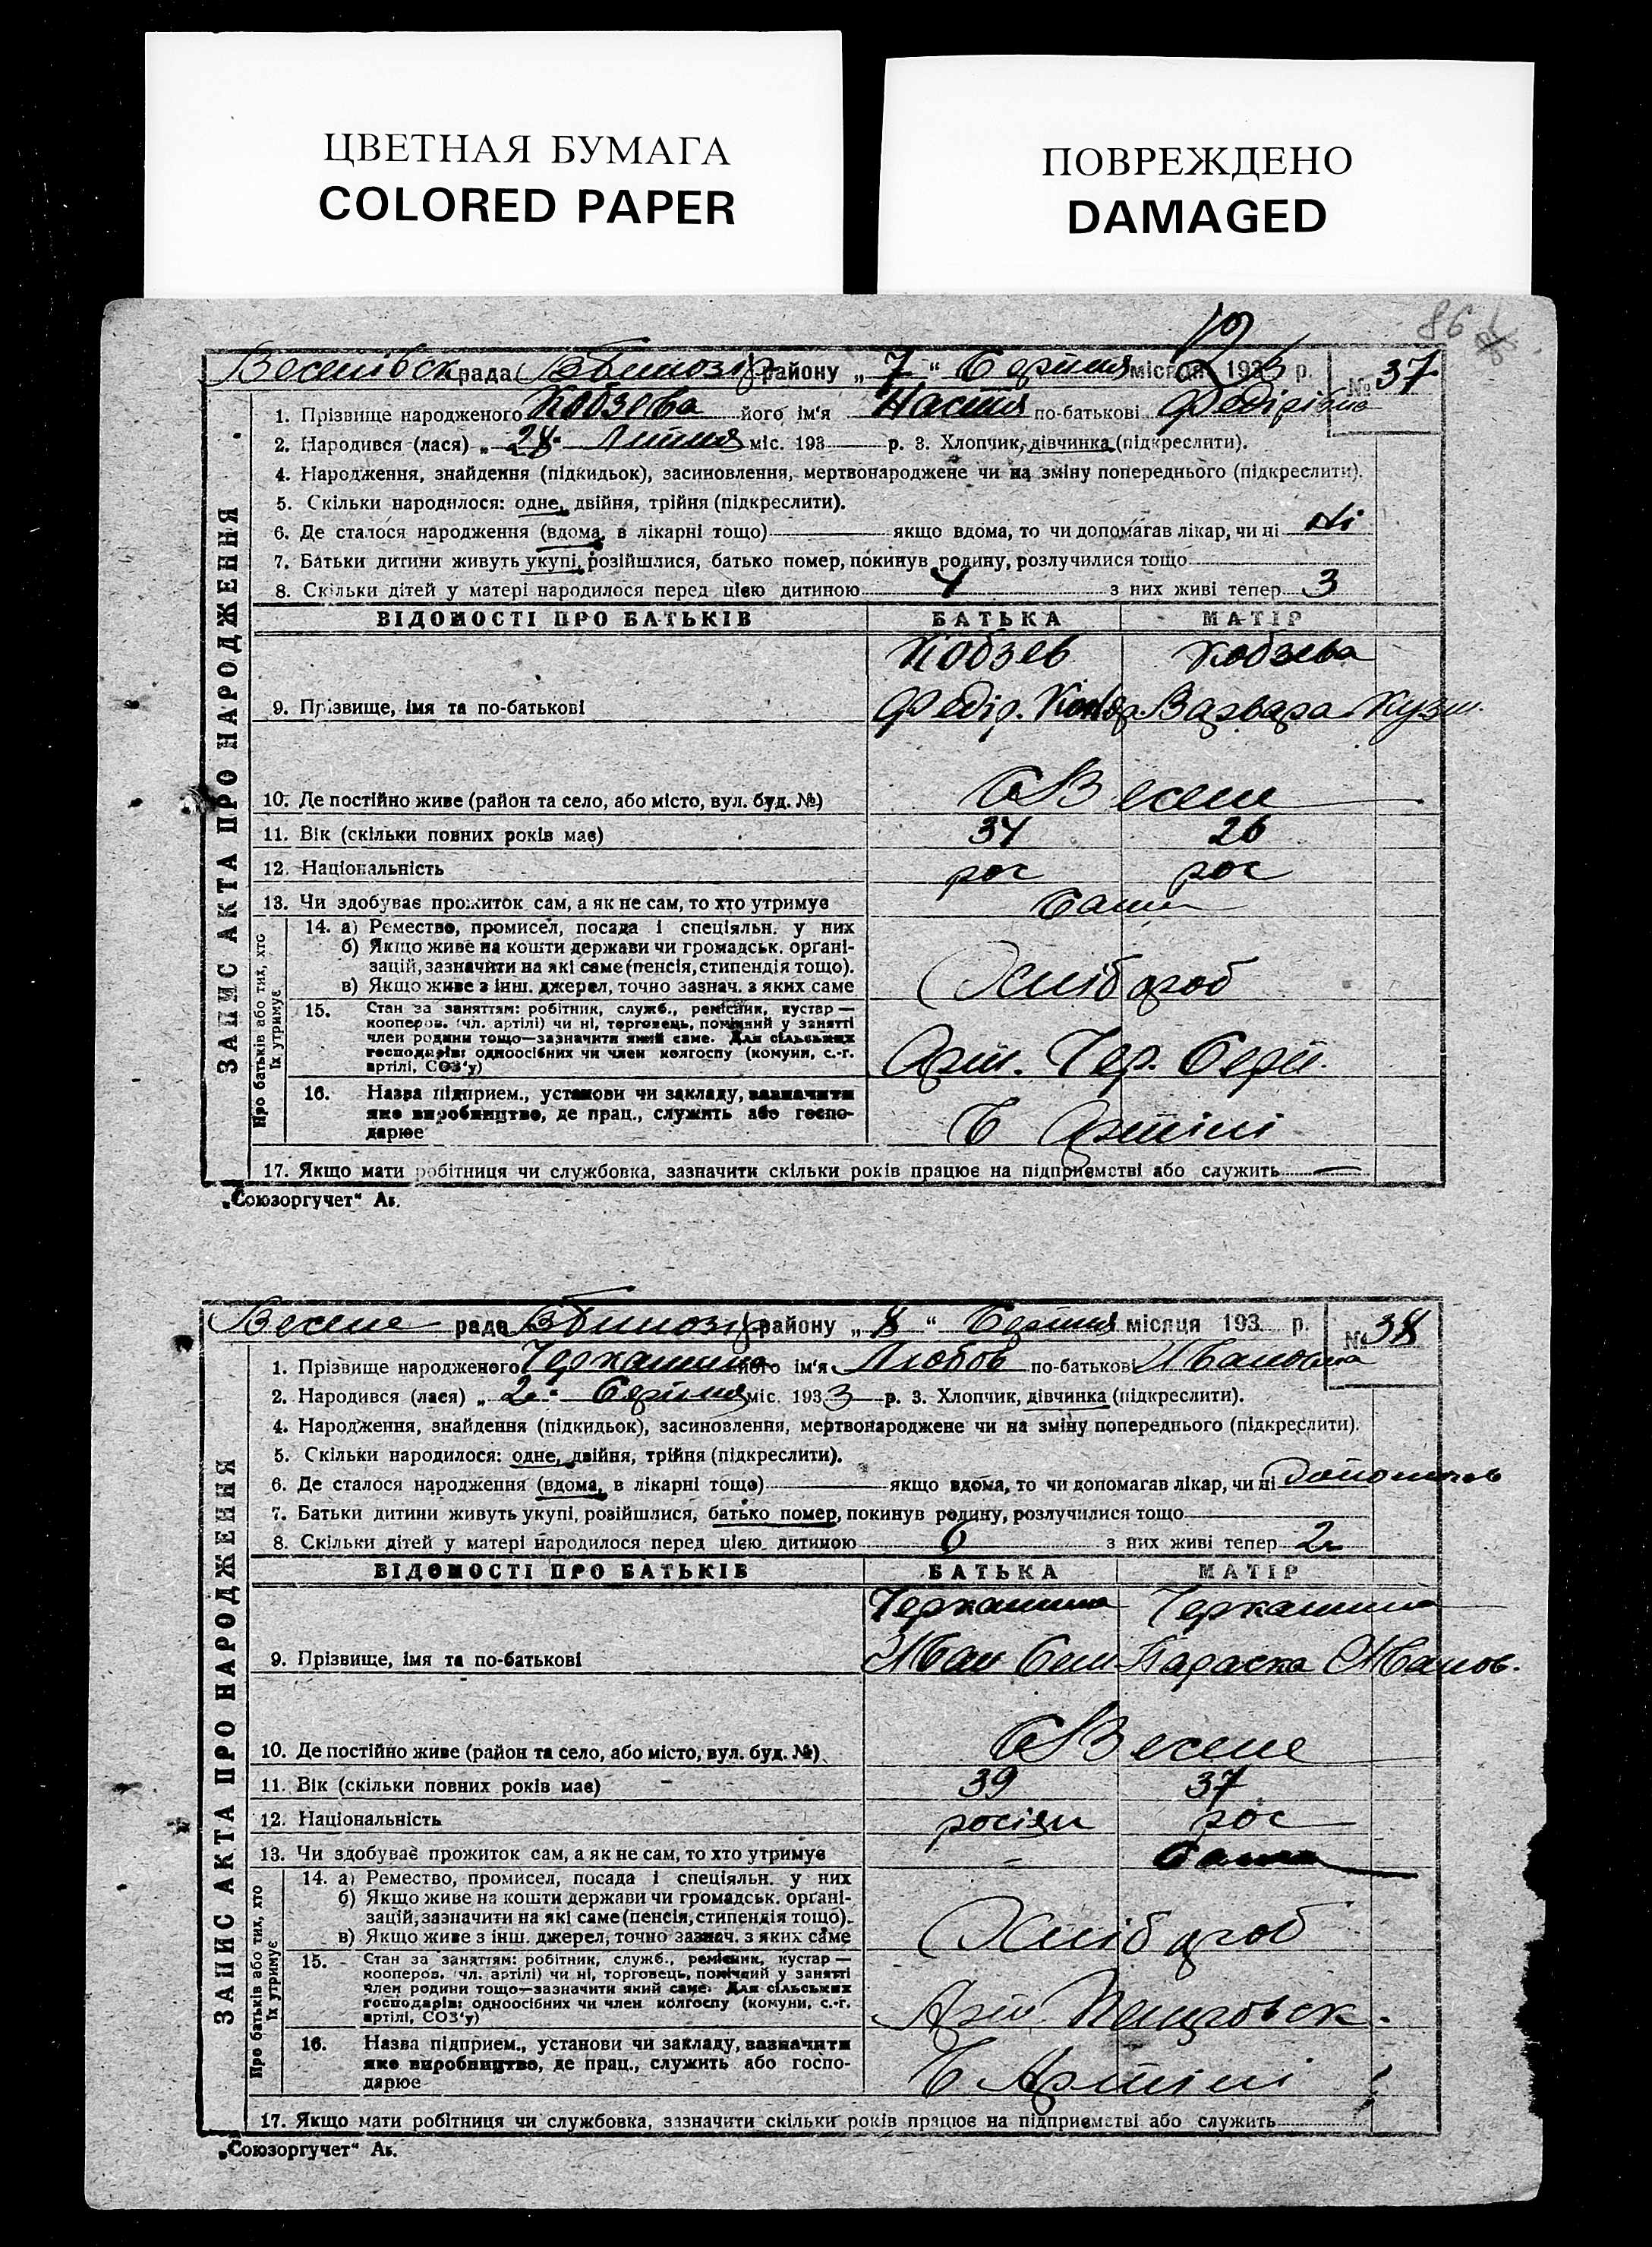 ЦВЕТНАЯ БУМАГА
COLORED PAPER
ПОВРЕЖДЕНО
DAMAGED
86
рада району „ 7 “ Серпня місяця 193 3 р. № 37
1. Прізвище народженого Кобзева його ім'я Настя по-батькові Федірівна
2. Народився (лася) „ 28 " Липня міс. 193 р. 3. Хлопчик, дівчинка (підкреслити).
4. Народження, знайдення (підкидьок), засиновлення, мертвонароджене чи на зміну попереднього (підкреслити).
5. Скільки народилося: одне, двійня, трійня (підкреслити).
6. Де сталося народження (вдома, в лікарні тощо) якщо вдома, то чи допомагав лікар, чи ні Ні
7. Батьки дитини живуть укупі, розійшлися, батько помер, покинув родину, розлучилися тощо
8. Скільки дітей у матері народилося перед цією дитиною 4 з них живі тепер 3
ЗАПИС АКТА ПРО НАРОДЖЕННЯ
ВІДОМОСТІ ПРО БАТЬКІВ БАТЬКА МАТІР
Кобзев Кобзева
9. Прізвище, імя та по-батькові Федір. Варвара Кузм.
10. Де постійно живе (район та село, або місто, вул. буд. №) с Веселе
11. Вік (скільки повних років має) 34 26
12. Національність рос рос
13. Чи здобуває прожиток сам, а як не сам, то хто утримує Сами
Про батьків або тих, хто їх утримує
14. а) Ремество, промисел, посада і спеціяльн. у них
б) Якщо живе на кошти держави чи громадськ. органі-
зацій, зазначити на які саме (пенсія, стипендія тощо).
в) Якщо живе з інш. джерел, точно зазнач. з яких саме
Хлібороб
15. Стан за заняттям: робітник, служб., ремісник, кустар —
кооперов. (чл. артілі) чи ні, торговець, помічний у занятті
член родини тощо—зазначити який саме. Для сільських
господарів: одноосібних чи член колгоспу (комуни, с.-г.
артілі, СОЗ'у)
Арт. Чер.
16. Назва підприєм., установи чи закладу, зазначити
яке виробництво, де прац., служить або госпо-
дарює
В Артілі
17. Якщо мати робітниця чи службовка, зазначити скільки років працює на підприємстві або служить —
„Союзоргучет“ Ак.
Веселе рада району „ 8 “ Серпня місяця 193 р. № 38
1. Прізвище народженого Черкашина його ім'я Любов по-батькові Ивановна
2. Народився (лася) „ 2 " Серпня міс. 193 3 р. 3. Хлопчик, дівчинка (підкреслити).
4. Народження, знайдення (підкидьок), засиновлення, мертвонароджене чи на зміну попереднього (підкреслити).
5. Скільки народилося: одне, двійня, трійня (підкреслити).
6. Де сталося народження (вдома, в лікарні тощо) якщо вдома, то чи допомагав лікар, чи ні допомагав
7. Батьки дитини живуть укупі, розійшлися, батько помер, покинув родину, розлучилися тощо
8. Скільки дітей у матері народилося перед цією дитиною 6 з них живі тепер 2
ЗАПИС АКТА ПРО НАРОДЖЕННЯ
ВІДОМОСТІ ПРО БАТЬКІВ БАТЬКА МАТІР
Черкашина Черкашина
9. Прізвище, імя та по-батькові Иван Сем Параска Иванов.
10. Де постійно живе (район та село, або місто, вул. буд. №) с Веселе
11. Вік (скільки повних років має) 39 37
12. Національність росіян рос
13. Чи здобуває прожиток сам, а як не сам, то хто утримує - Сама
Про батьків або тих, хто їх утримує
14. а) Ремество, промисел, посада і спеціяльн. у них
б) Якщо живе на кошти держави чи громадськ. органі-
зацій, зазначити на які саме (пенсія, стипендія тощо).
в) Якщо живе з інш. джерел, точно зазнач. з яких саме
Хлібороб
15. Стан за заняттям: робітник, служб., ремісник, кустар —
кооперов. (чл. артілі) чи ні, торговець, помічний у занятті
член родини тощо—зазначити який саме. Для сільських
господарів: одноосібних чи член колгоспу (комуни, с.-г.
артілі, СОЗ'у)
16. Назва підприєм., установи чи закладу, зазначити
яке виробництво, де прац., служить або госпо-
дарює
В Артілі
17. Якщо мати робітниця чи службовка, зазначити скільки років працює на підприємстві або служить
„Союзоргучет“ Ак.